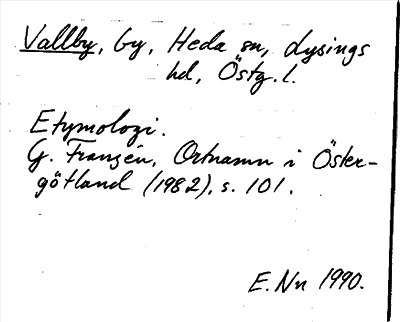 Vallby, by, Heda sn, Lysings
hd, Östg. l.
Etymologi.
G. Franzén, Ortnamn i Öster-
götland (1982), s. 101.
E. Nn 1990.